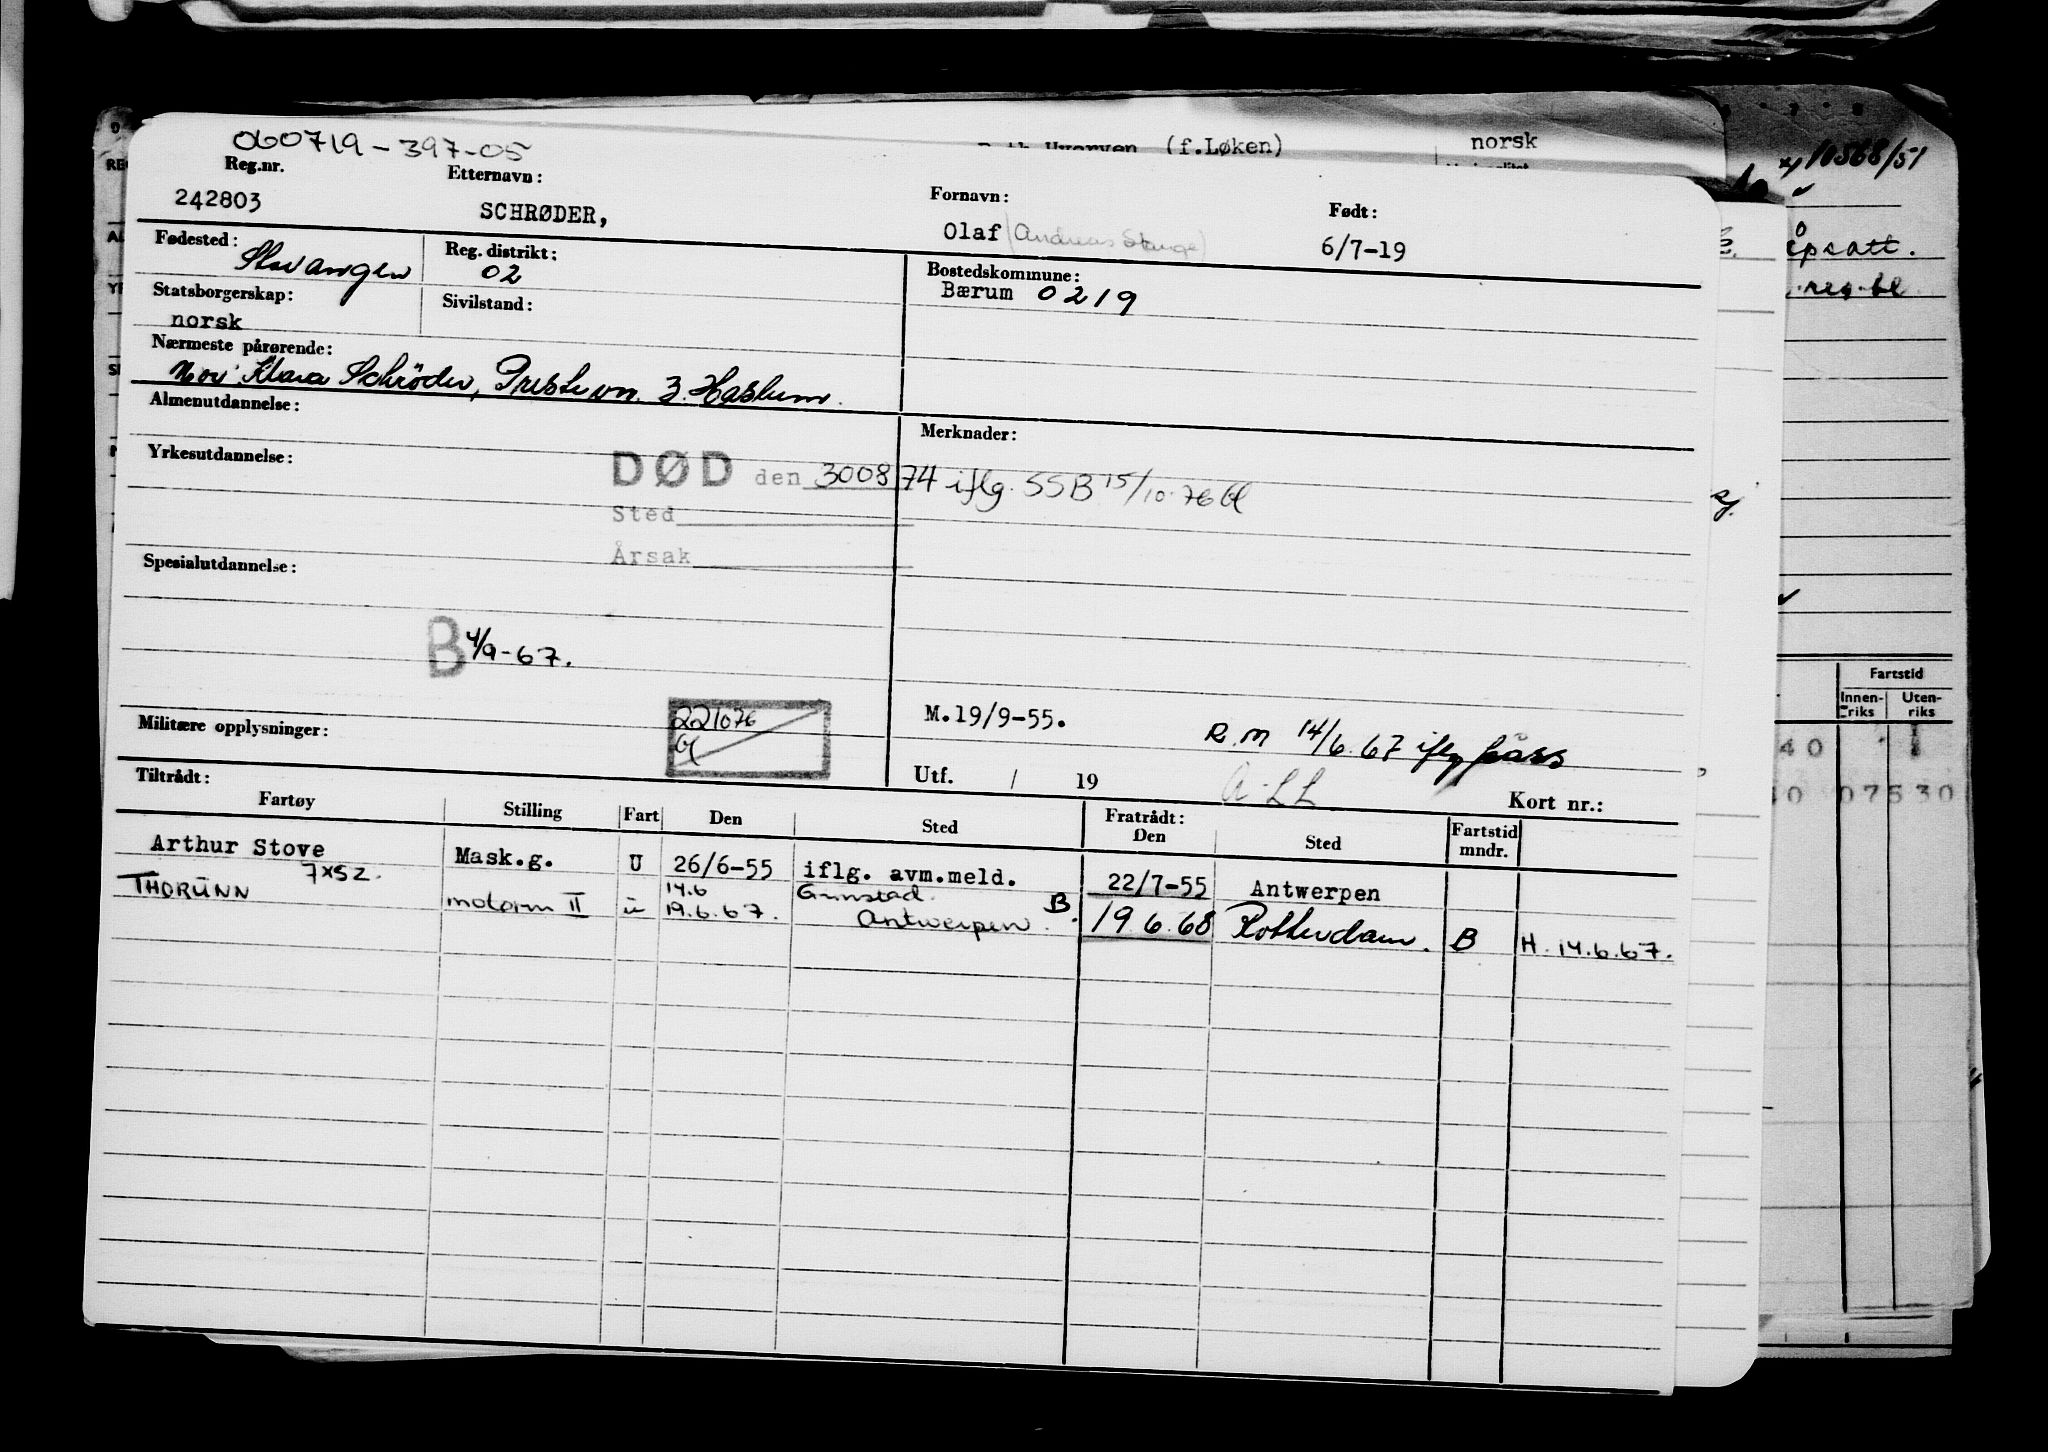 060719-397-05
(f.Løken)
norsk
10568/51
Reg.nr.
Etternavn:
Fornavn:
Født:
242803
SCHRØDER,
Olaf (Andreas Stange)
6/7-19
Fødested:
Stavanger
Reg. distrikt:
02
Bostedskommune:
Bærum 0219
Statsborgerskap:
norsk
Sivilstand:
Nærmeste pårørende:
Mor Klara Schröder, Prestevn. 3. Haslum.
Almenutdannelse:
Merknader:
Yrkesutdannelse:
DØD den 300874 iflg. SSB 15/10.76 bl
Sted
Årsak
Spesialutdannelse:
B 4/9-67.
221076
bl
Militære opplysninger:
M.19/9-55.
R.m 14/6.67 iflg pass
Utf. / 19
A.LL
Kort nr.:
Tiltrådt:
Fartøy
Stilling
Fart
Den
Sted
Fratrådt:
Den
Sted
Fartstid
mndr.
Arthur Stove
Mask.g.
U
26/6-55
iflg. avm.meld.
22/7-55
Antwerpen
7XSZ.
THORUNN
motorm II
u
14.6
19.6.67.
Grimstad.
Antwerpen.
B.
19.6.68
Rotterdam.
B
H. 14.6.67.
Fartstid
Innenriks
Utenriks
40
07530